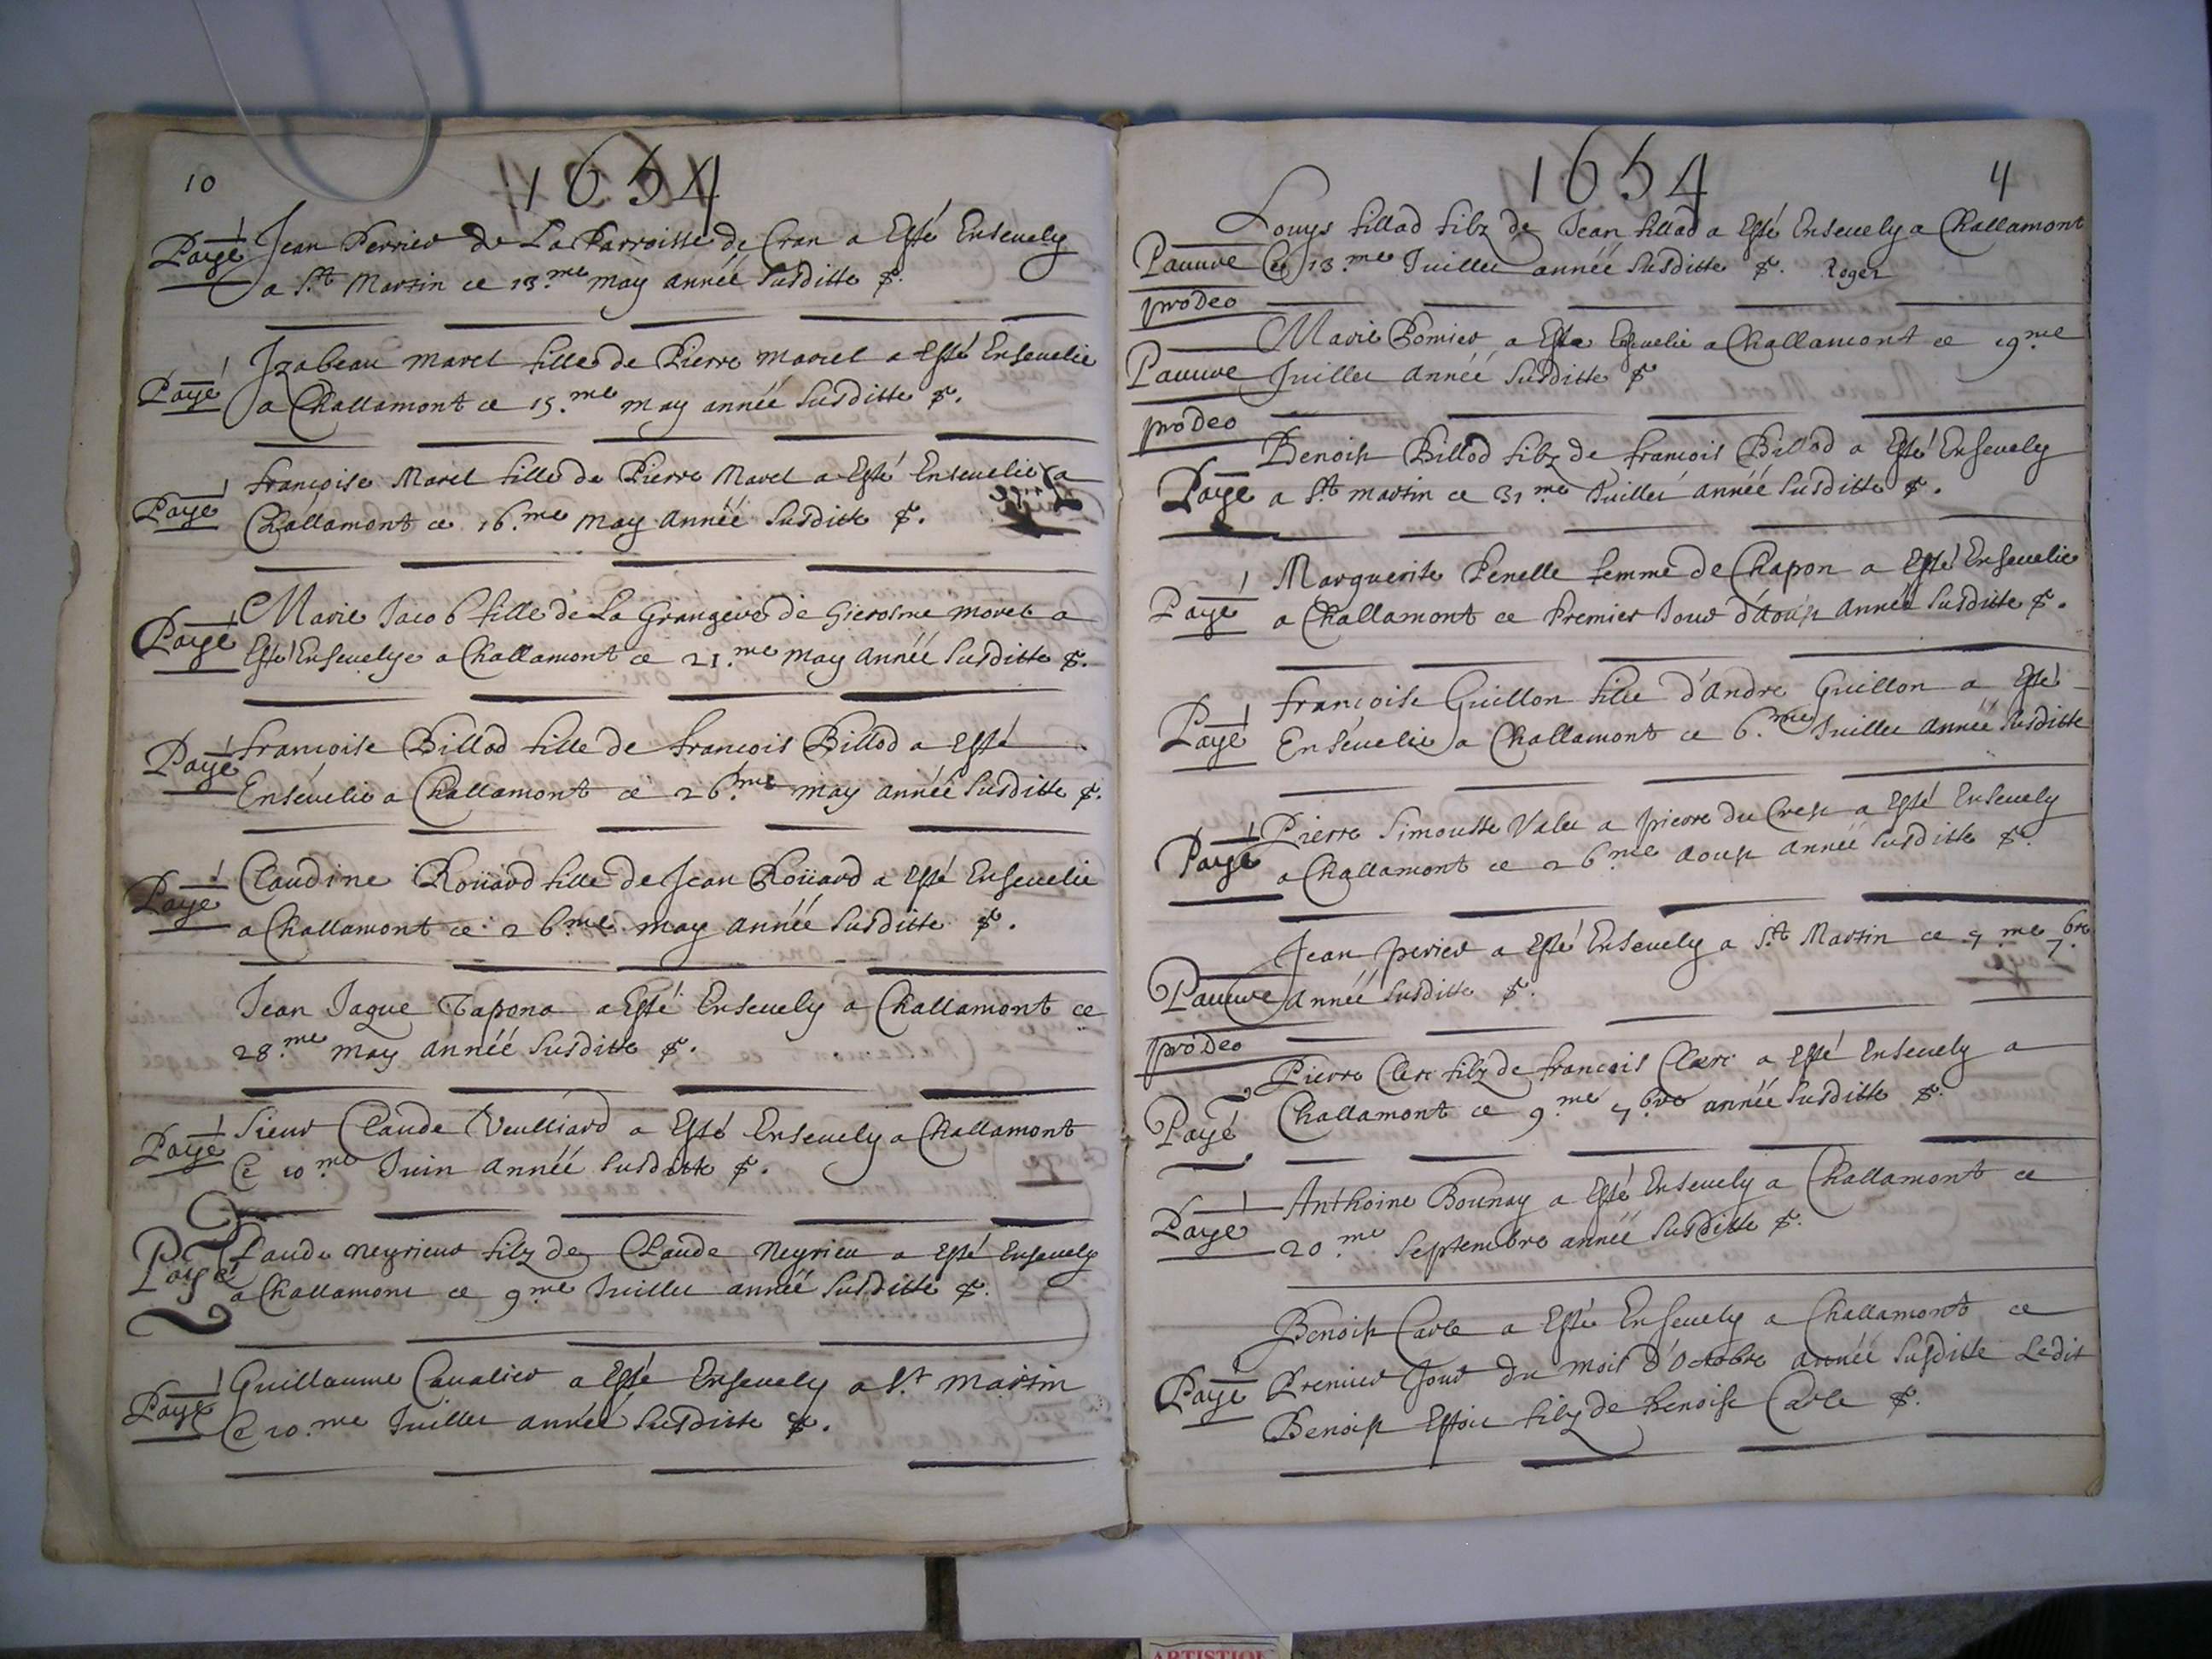 10
1654
Payé Jean Perrier de La Parroisse de Cran a Esté Ensevely
a St Martin ce 13.me may année susditte &.
Payé Izabeau Morel fille de Pierre Morel a Esté Ensevelie
a Challamont ce 15.me may année susditte &.
Payé françoise Morel fille de Pierre Morel a Esté Ensevelie a
Challamont ce 16.me may année susditte &.
Payé Marie Jacob fille de La Grangere de Gierosme morel a
Esté Ensevelye a Challamont ce 21.me may année susditte &.
Payé françoise Billod fille de françois Billod a Esté
Ensevelie a Challamont ce 26.me may année susditte &.
Payé Claudine Roüard fille de Jean Roüard a Esté Ensevelie
a Challamont ce 26.me may année susditte &.
Jean Jaque Tapona a Esté Ensevely a Challamont ce
28.me may année susditte &.
Payé Sieur Claude Veulliard a Esté Ensevely a Challamont
Ce 10.me Juin année susditte &.
Payé Claude neyrieur filz de Claude Neyrieu a Esté Ensevely
a Challamont ce 9me Juillet année susditte &.
Payé Guillaume Cavalier a Esté Ensevely a St martin
Ce 10.me Juillet année susditte &.
1654
4
Louys fillod filz de Jean fillod a Esté Ensevely a Challamont
Pauvre Ce 13.me Juillet année susditte &. Roger
prodeo
Marie Pomier a Esté Ensevelie a Challamont ce 19.me
Pauvre Juillet année susditte &
prodeo
Benoist Billod filz de françois Billod a Esté Ensevely
Payé a St martin ce 31.me Juillet année susditte &.
Payé Marguerite Penelle femme de Chapon a Esté Ensevelie
a Challamont ce Premier Jour d'aoust année susditte &.
Payé françoise Guillon fille d'andre Guillon a Esté
Ensevelie a Challamont ce 6.me Juillet année susditte
Payé Pierre Simousse Valet a pierre du Crest a Esté Ensevely
a Challamont ce 26.me aoust année susditte &.
Jean perier a Esté Ensevely a St Martin ce 7.me 7.bre
Pauvre année susditte &.
prodeo
Payé Pierre Clerc filz de françois Clerc a Esté Ensevely a
Challamont ce 9.me 7.bre année susditte &.
Payé Anthoine Bounay a Esté Ensevely a Challamont ce
20.me Septembre année susditte &.
Benoist Carle a Esté Ensevely a Challamont ce
Payé Premier Jour du mois d'Octobre année susditte Ledit
Benoist Estoit filz de benoist Carle &.